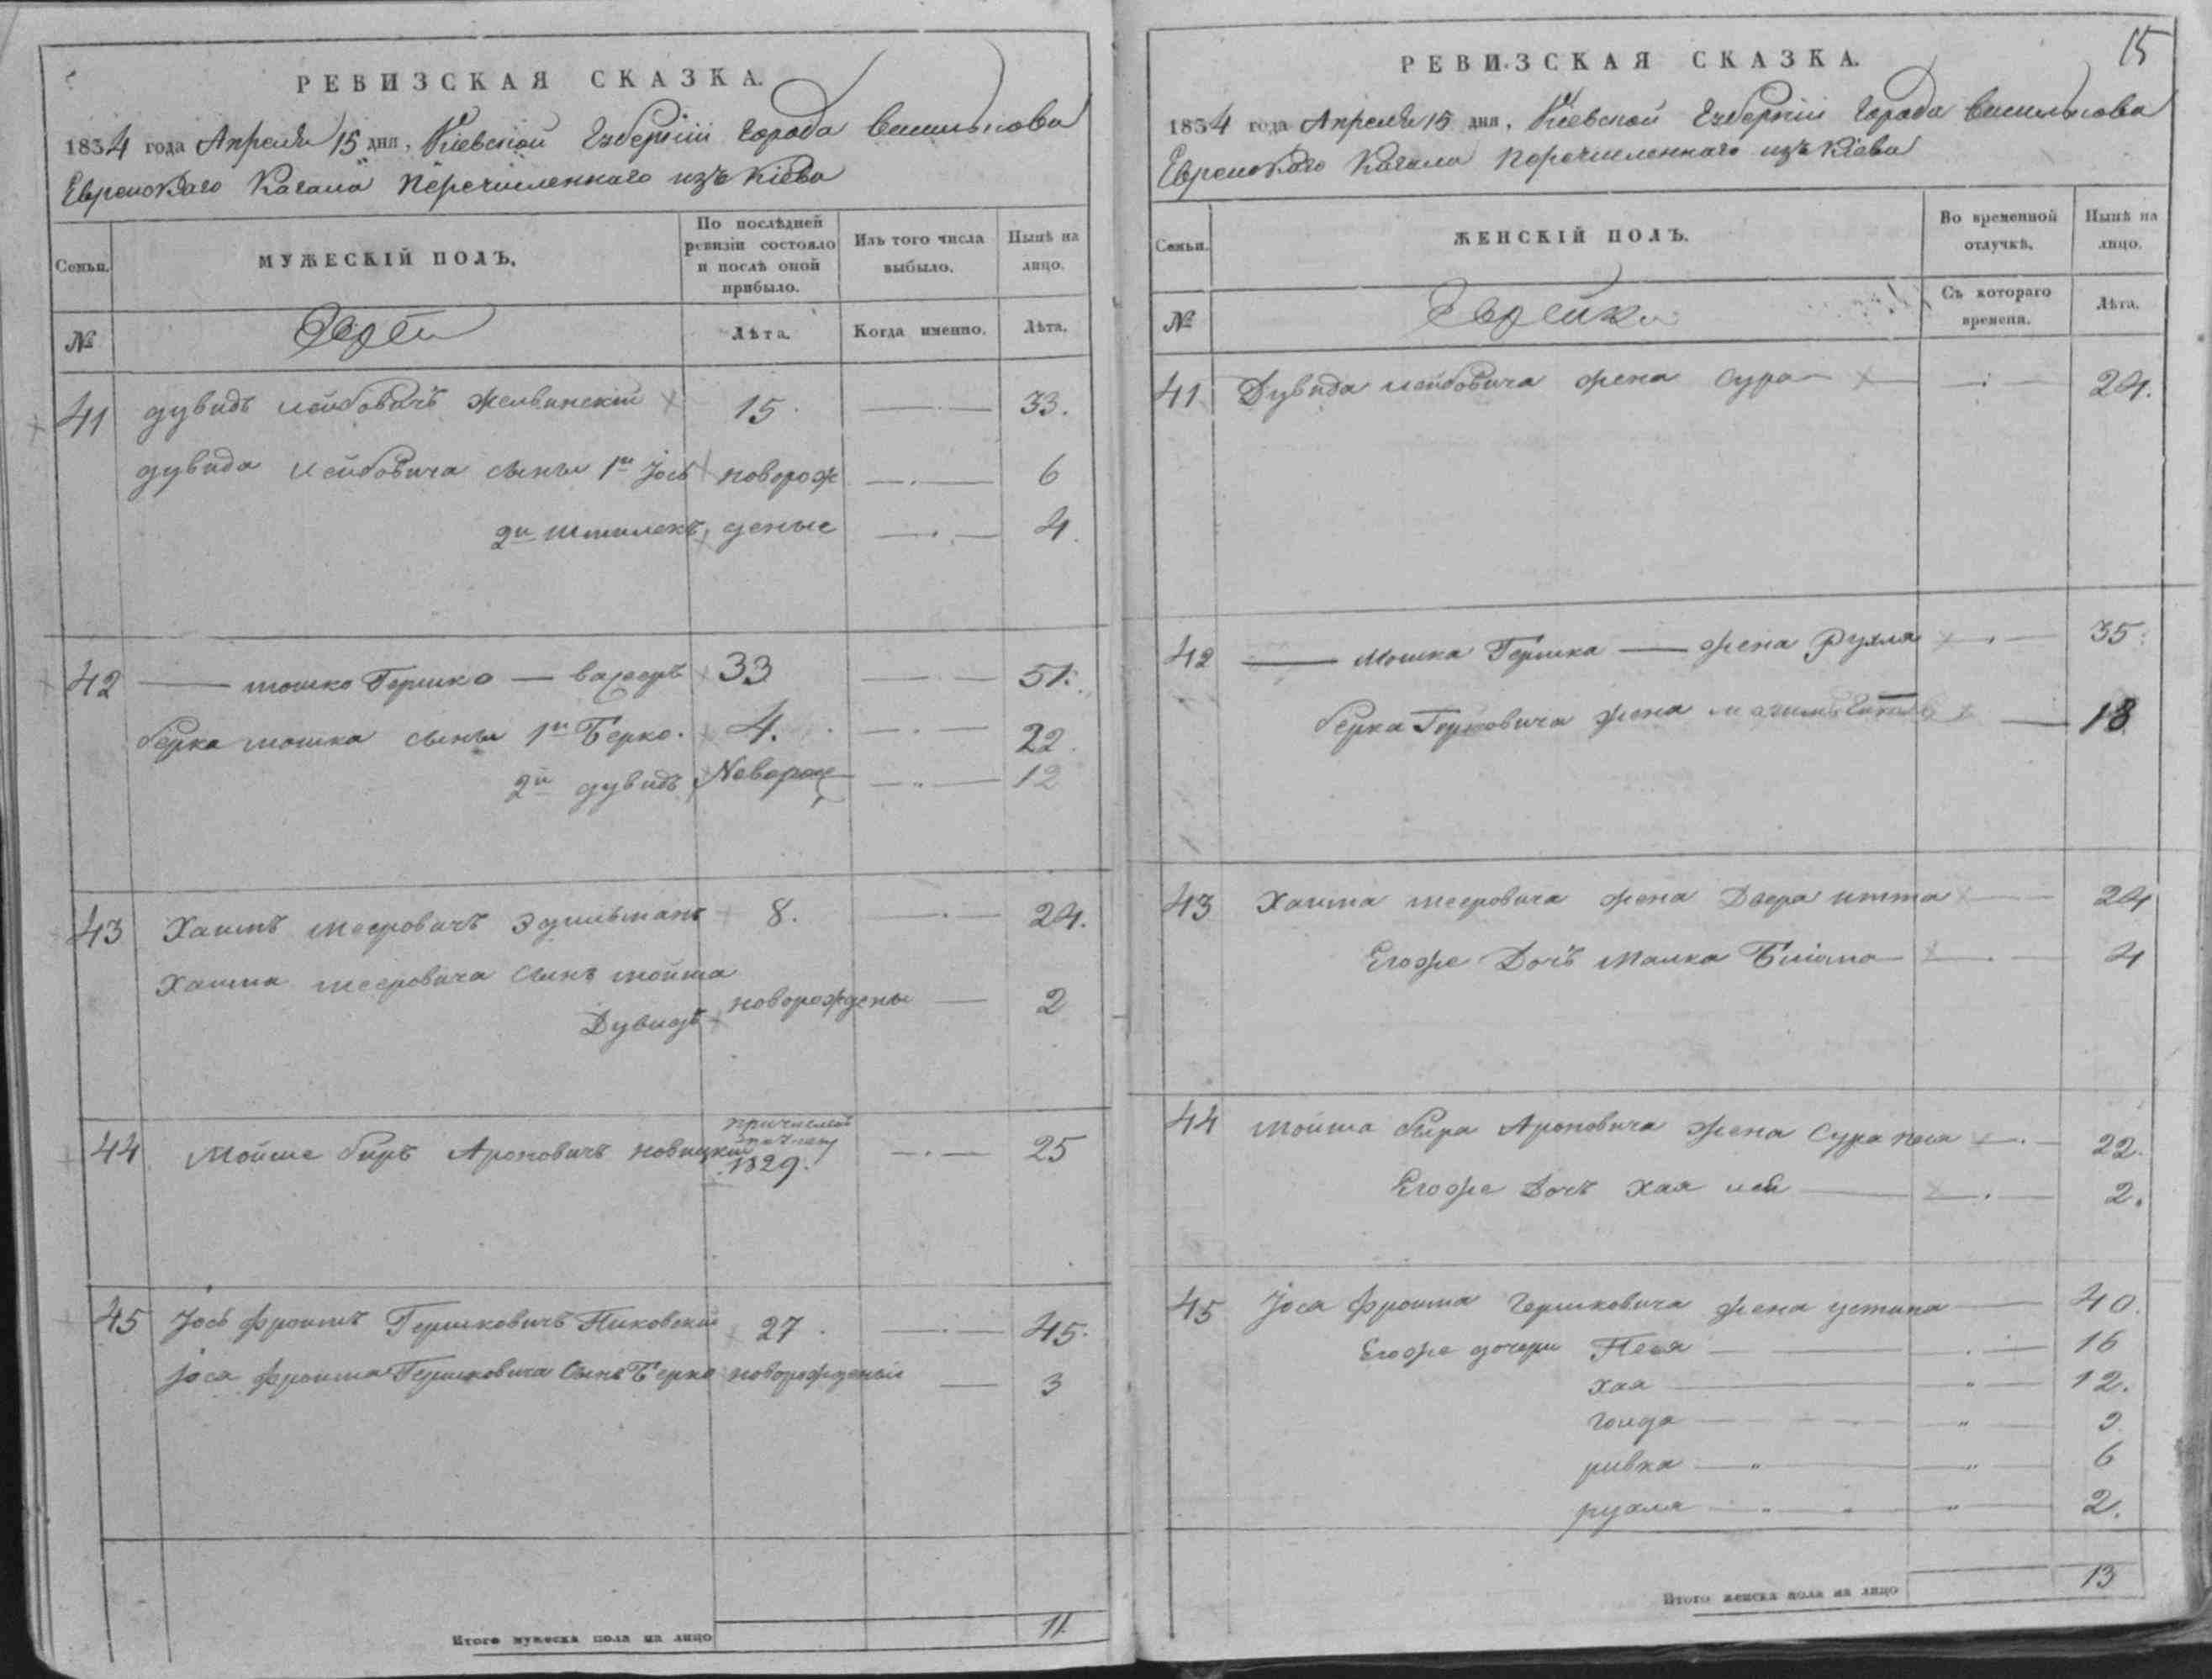 РЕВИЗСКАЯ СКАЗКА.
1834 года Апреля 15 дня, Кіевской Губерніи Города Василькова
Еврейскаго Кагала Перечисленнаго изъ Кіева
Семьи.
МУЖЕСКІЙ ПОЛЪ.
По послѣдней ревизіи состояло и послѣ оной прибыло.
Изъ того числа выбыло.
Нынѣ на лицо.
№
Евреи
Лѣта.
Когда именно.
Лѣта.
41 дувидъ лейбовичъ 15. 33.
дувида лейбовича сыны 1й Іось новорож 6
2й деные 4.
42 мошко Гершко 33 51.
мошка сыны 1й Берко. 4. 22.
2й дувидъ Новорож 12
43 Хаимъ мееровичъ 8. 24.
Хаима мееровича сынъ мойша
Дувидъ новорожденые 2
44 Мойше беръ Ароновичъ новицкій 1829. 25
45 Іось фроимъ Гершковичъ 27. 45.
Іоса фроима Гершковича сынъ Берко новорожденый 3
Итого мужеска пола на лицо 11.
15
РЕВИЗСКАЯ СКАЗКА.
1834 года Апреля 15 дня, Кіевской Губерніи Города Василькова
Еврейскаго Кагала Перечисленнаго изъ Кіева
Семьи.
ЖЕНСКІЙ ПОЛЪ.
Во временной отлучкѣ.
Нынѣ на лицо.
№
Еврейки
Съ котораго времени.
Лѣта.
41 Дувида лейбовича жена сура 24.
42 Мошка Гершка жена Рухля 35.
жена 18
43 Хаима мееровича жена Двера итта 24
Егоже Дочъ малка 4
44 Мойша бера Ароновича жена Сура песя 22.
Егоже Дочъ хая лея 2.
45 Іоса фроима Гершковича жена устина 40.
Егоже дочери Песя 16
хая 12.
голда 9
ривка 6
рухля 2.
Итого женска пола на лицо 13